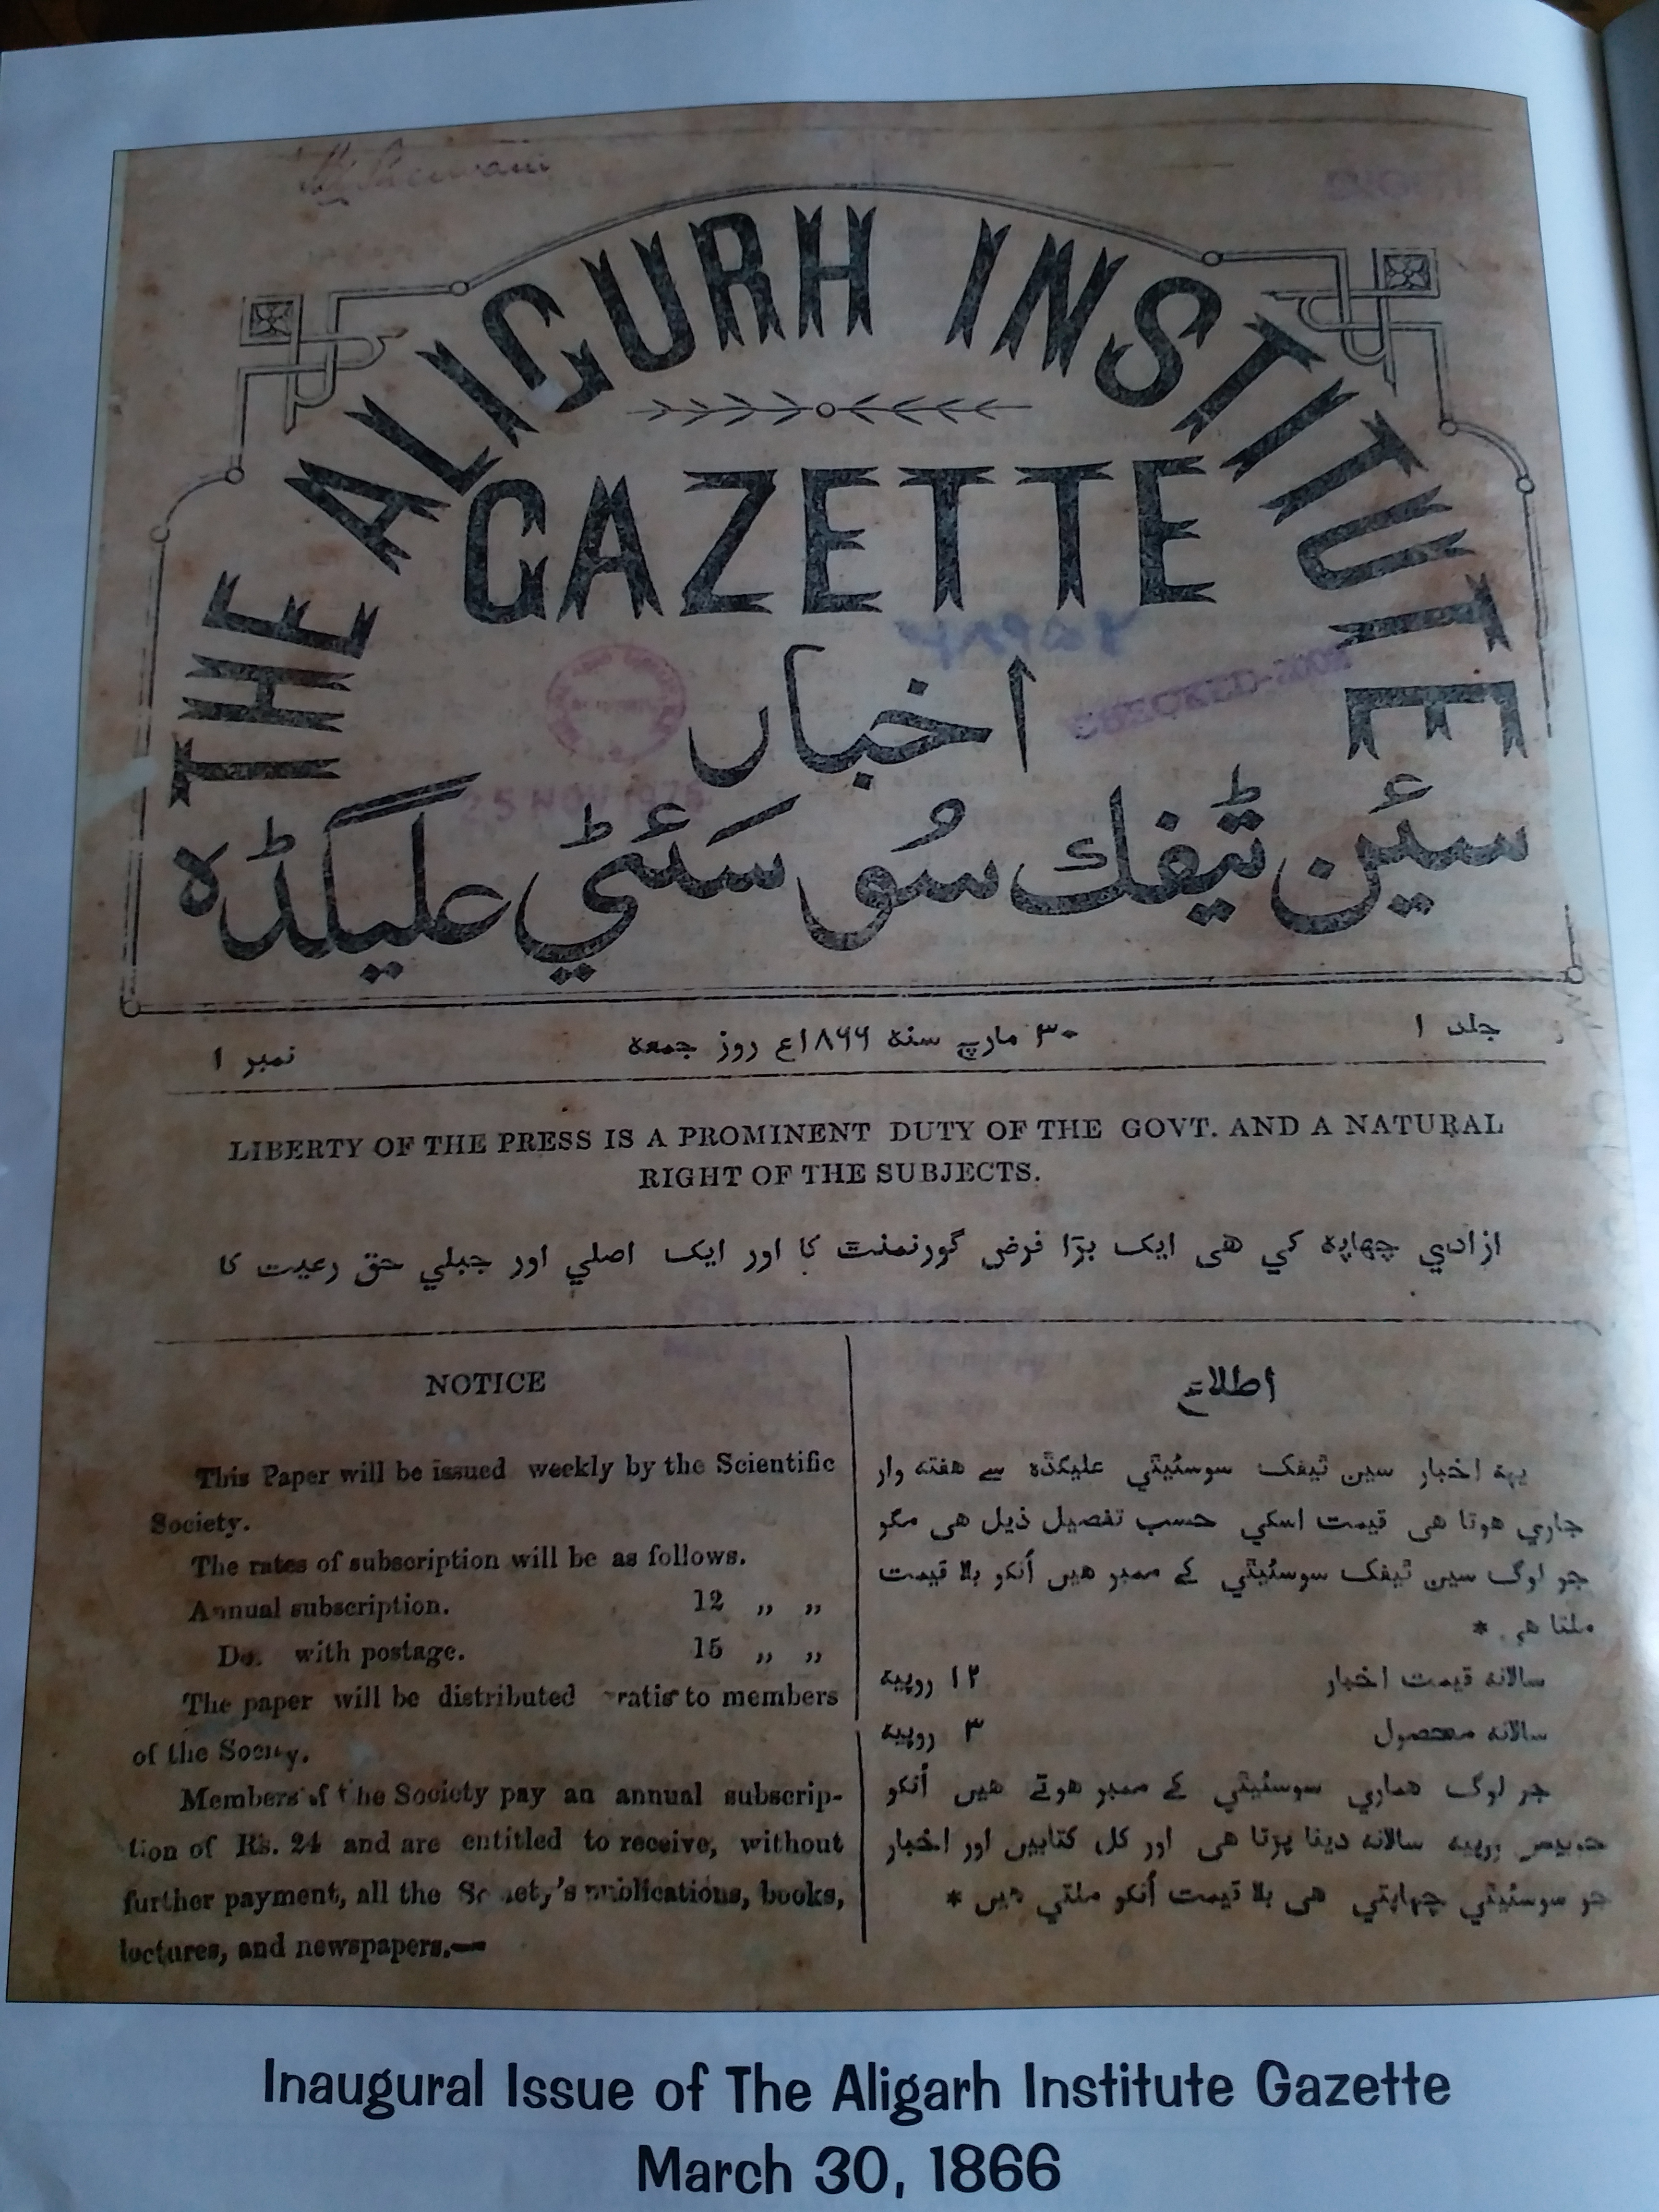 THE ALIGURH INSTITUTE
GAZETTE
اخبار
سئین ٹیفک سُو سَئٹي علیگڈہ
CHECKED-2002
25 NOV 1975
جلد ۱
۳۰ مارچ سنہ ۱۸۶۶ع روز جمعہ
نمبر ۱
LIBERTY OF THE PRESS IS A PROMINENT DUTY OF THE GOVT. AND A NATURAL
RIGHT OF THE SUBJECTS.
ازادي چھاپہ کي ھی ایک بڑا فرض گورنمنٹ کا اور ایک اصلي اور جبلي حق رعیت کا
NOTICE
This Paper will be issued weekly by the Scientific
Society.
The rates of subscription will be as follows.
Annual subscription. 12 ,, ,,
Do. with postage. 15 ,, ,,
The paper will be distributed ratis to members
of the Society.
Members of the Society pay an annual subscrip-
tion of Rs. 24 and are entitled to receive, without
further payment, all the Society's publications, books,
lectures, and newspapers.—
اطلاع
یہہ اخبار سین ٹیفک سوسئیٹي علیگڈہ سے ھفتہ وار
جاري ھوتا ھی قیمت اسکي حسب تفصیل ذیل ھی مگر
جو لوگ سین ٹیفک سوسئیٹي کے ممبر ھیں اُنکو بلا قیمت
ملتا ھی *
سالانہ قیمت اخبار ۱۲ روپیہ
سالانہ محصول ۳ روپیہ
جو لوگ ھماري سوسئیٹي کے ممبر ھوتے ھیں اُنکو
چوبیس روپیہ سالانہ دینا پڑتا ھی اور کل کتابیں اور اخبار
جو سوسئیٹي چھاپتي ھی بلا قیمت اُنکو ملتي ھیں *
Inaugural Issue of The Aligarh Institute Gazette
March 30, 1866